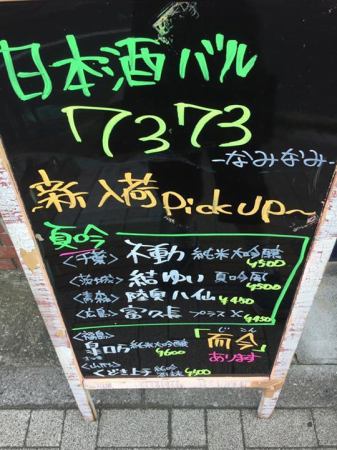 日本酒バル
7373
-なみなみ-
新入荷 Pick up~
夏吟
<千葉> 不動 純米大吟醸 ¥500
<茨城> 結ゆい 夏吟風 ¥500
<青森> 陸奥八仙 ¥450
<広島> 富久長 プラスX ¥450
<福島> 純米大吟醸 ¥600
<山形> くどき上手 純吟 ¥500
じこん
「而今」
あります